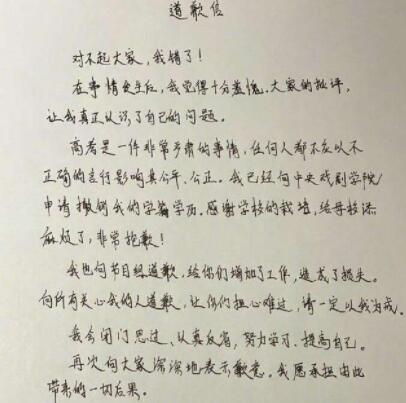 道歉信
对不起大家，我错了！
在事情发生后，我觉得十分羞愧。大家的批评，
让我真正认识了自己的问题。
高考是一件非常严肃的事情，任何人都不应以不
正确的言行影响其公平、公正。我已经向中央戏剧学院
申请撤销我的学籍学历。感谢学校的栽培，给母校添
麻烦了，非常抱歉！
我也向节目组道歉，给你们增加了工作，造成了损失。
向所有关心我的人道歉，让你们担心难过，请一定以我为戒。
我会闭门思过、认真反省，努力学习、提高自己。
再次向大家深深地表示歉意。我愿承担由此
带来的一切后果。